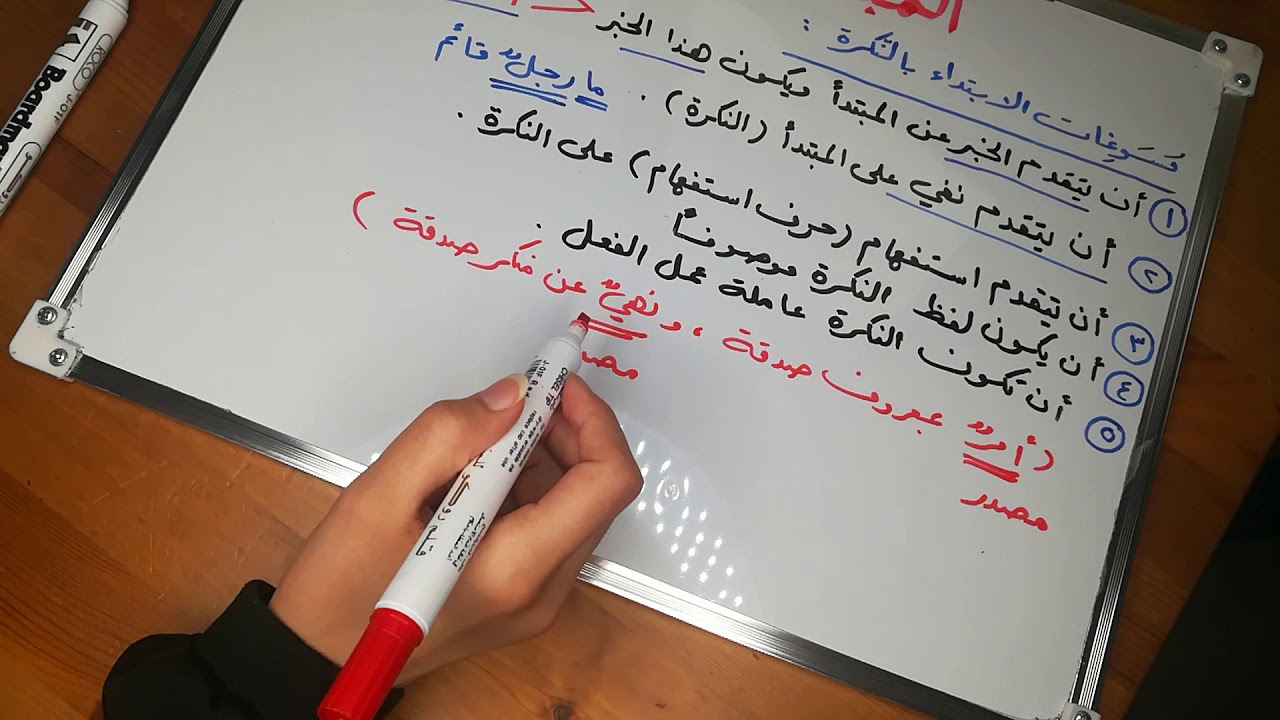 مُسَوِّغات الابتداء بالنكرة :
١ أن يتقدم الخبر عن المبتدأ ويكون هذا الخبر
٢ أن يتقدم نفي على المبتدأ (النكرة) . ما رجلٌ قائم
٣ أن يتقدم استفهام (حرف استفهام) على النكرة .
٤ أن يكون لفظ النكرة موصوفاً
٥ أن تكون النكرة عاملة عمل الفعل .
(أمرٌ بمعروف صدقة ، و نهيٌ عن منكر صدقة )
مصدر مصد
ROCO
Boardma
CHISEL TIP